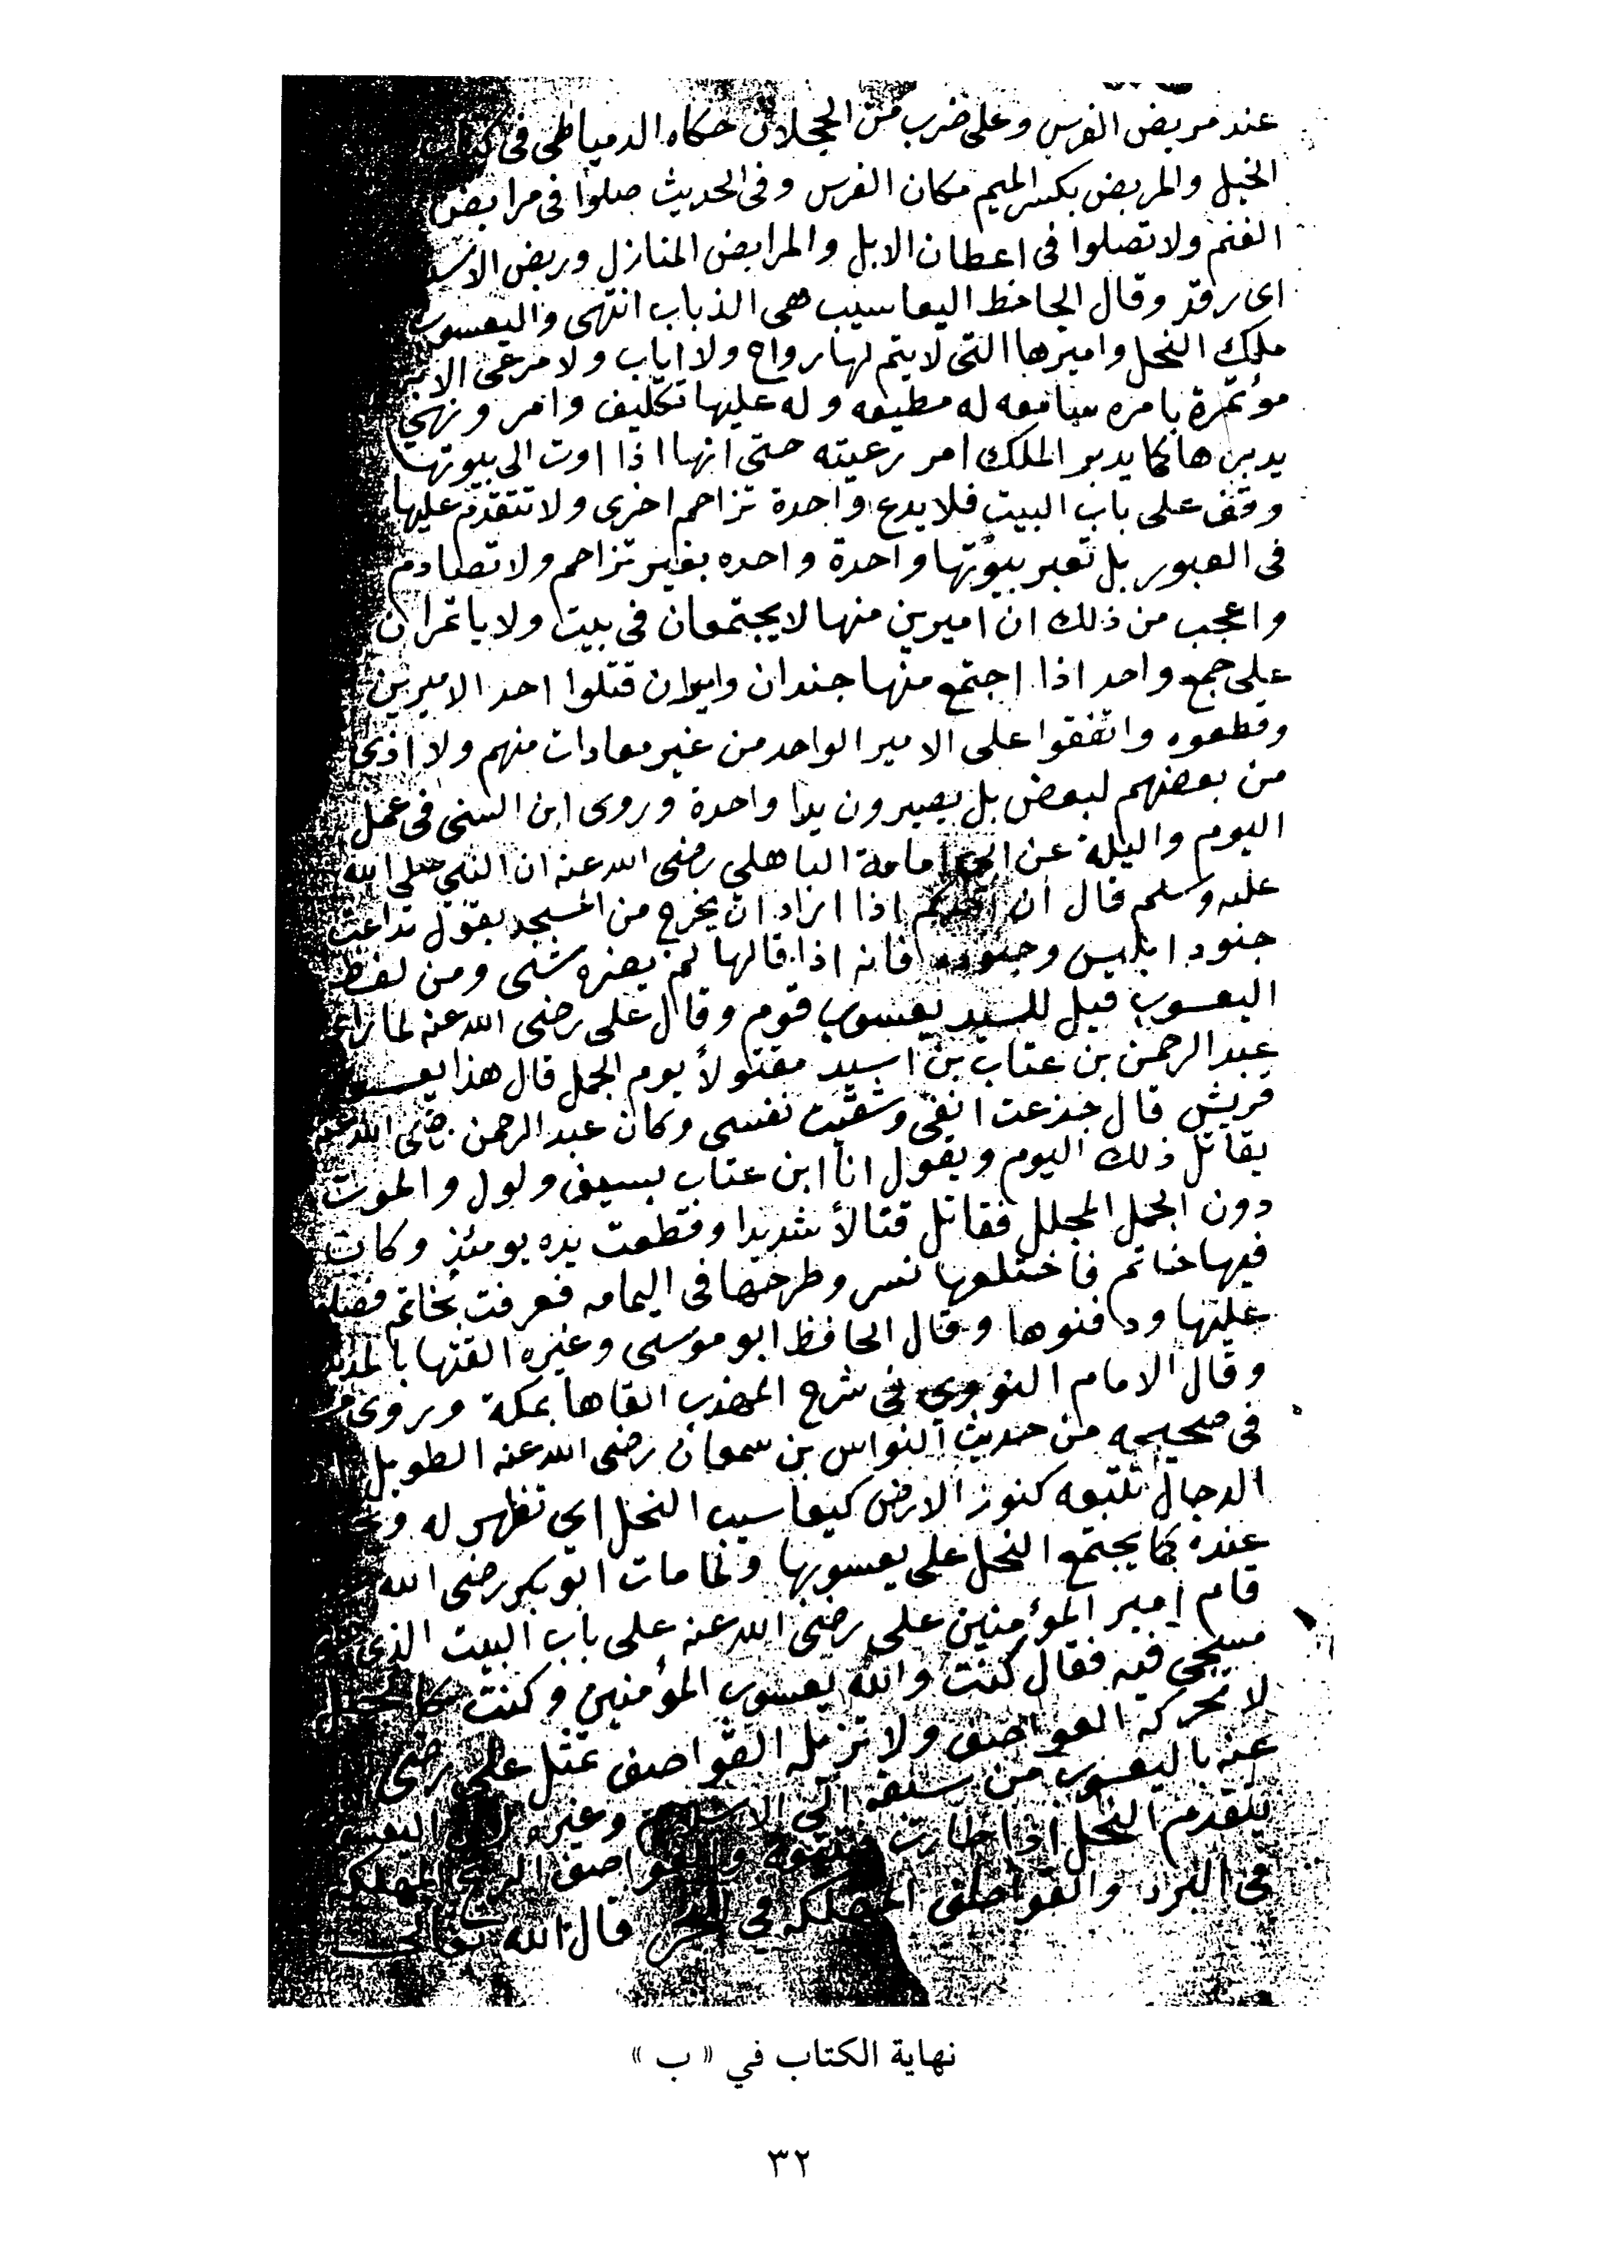 عند مربض الفرس وعلى ضرب من الحجلان حكاه الدمياطي في كتاب
الخيل والمربض بكسر الميم مكان الفرس وفي الحديث صلوا في مرابض
الغنم ولا تصلوا في اعطان الابل والمرابض المنازل وربض الاسد
اى رقد وقال الجاحظ اليعاسيب هى الذباب انتهى واليعسوب
ملك النحل واميرها التى لا يتم لها رواح ولا اياب ولا مرعى الا به
مؤتمرة بامره سامعه له مطيعه وله عليها تكليف وامر ونهي
يدبرها كما يدبر الملك امر رعيته حتى انها اذا اوت الى بيوتها
وقف على باب البيت فلا يدع واحدة تزاحم اخرى ولا تتقدم عليها
فى العبور بل تعبر بيوتها واحدة واحده بغير تزاحم ولا تصادم
واعجب من ذلك ان اميرين منها لا يجتمعان فى بيت ولا ياتمران
على جمع واحد اذا اجتمع منها جندان واميران قتلوا احد الاميرين
وقطعوه واتفقوا على الامير الواحد من غير معادات منهم ولا اذى
من بعضهم لبعض بل يصيرون يدا واحدة وروى ابن السنى فى عمل
اليوم والليلة عن ابى امامة الباهلي رضى الله عنه ان النبي صلى الله
عليه وسلم قال ان احدكم اذا اراد ان يخرج من المسجد يقول تداعت
جنود ابليس وجنوده فانه اذا قالها لم يضره شئ ومن لفظ
اليعسوب قيل للسيد يعسوب قوم وقال على رضى الله عنه لما راى
عبد الرحمن بن عتاب بن اسيد مقتولاً يوم الجمل قال هذا يعسوب
قريش قال جذعت انفى وشقيت نفسى وكان عبد الرحمن رضى الله عنه
يقاتل ذلك اليوم ويقول انا ابن عتاب بسيفى ولول والموت
دون الجمل المجلل فقاتل قتالاً شديدا وقطعت يده يومئذ وكان
فيها خاتم فاختلعها نسر وطرحها فى اليمامه فعرفت بخاتم فصلوا
عليها ودفنوها وقال الحافظ ابو موسى وغيره القتها بالمدينة
وقال الامام النووي في شرح المهذب القاها بمكة وروى
فى صحيحه من حديث النواس بن سمعان رضى الله عنه الطويل
الدجال تتبعه كنوز الارض كيعاسيب النحل اي تظهر له
عنده كما يجتمع النحل على يعسوبها ولما مات ابو بكر رضى الله
قام امير المؤمنين على رضى الله عنه على باب البيت الذي
مسجى فيه فقال كنت والله يعسوب المؤمنين وكنت كالجبل
لا يحركه العواصف ولا تزيله القواصف تمثل على رضى
عنه باليعسوب من سبقه الى الاسلام وغيره اليعسوب
يتقدم النحل اذا طارت فتتبعه والعواصف الريح المهلكه
فى البرد والقواصف المهلكه في البحر قال الله تعالى
نهاية الكتاب في « ب »
٣٢